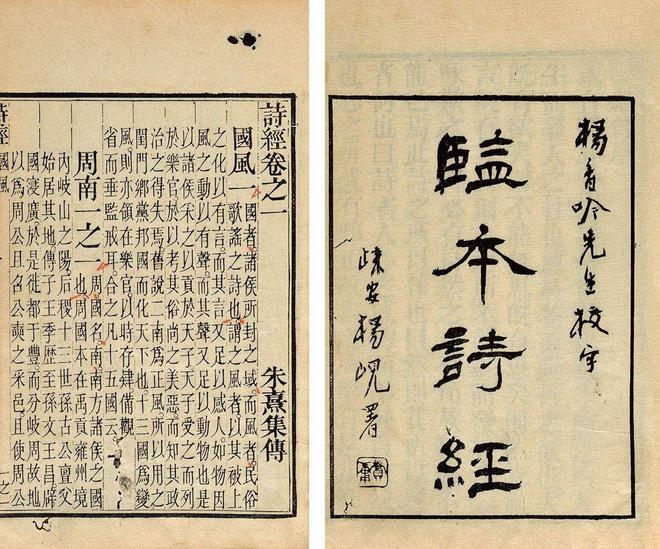 楊香吟先生校字
監本詩經
疎安楊峴署
詩經卷之一 朱熹集傳
國風一 國者諸侯所封之域而風者民俗
歌謠之詩也謂之風者以其被上
之化以有言而其言又足以感人如物因
風之動以有聲而其聲又足以動物也是
以諸侯采之以貢於天子天子受之而列
於樂官於以考其俗尚之美惡而知其政
治之得失焉舊說二南爲正風所以用之
閨門鄉黨邦國而化天下也十三國爲變
風則亦領在樂官以時存肄備觀
省而垂監戒耳合之凡十五國云
周南一之一 周國名南南方諸侯之國
也周國本在禹貢雍州境
內岐山之陽后稷十三世孫古公亶父
始居其地傳子王季歷至孫文王昌辟
國浸廣於是徙都于豐而分岐周故地
以爲周公旦召公奭之采邑且使周公
詩經 國風